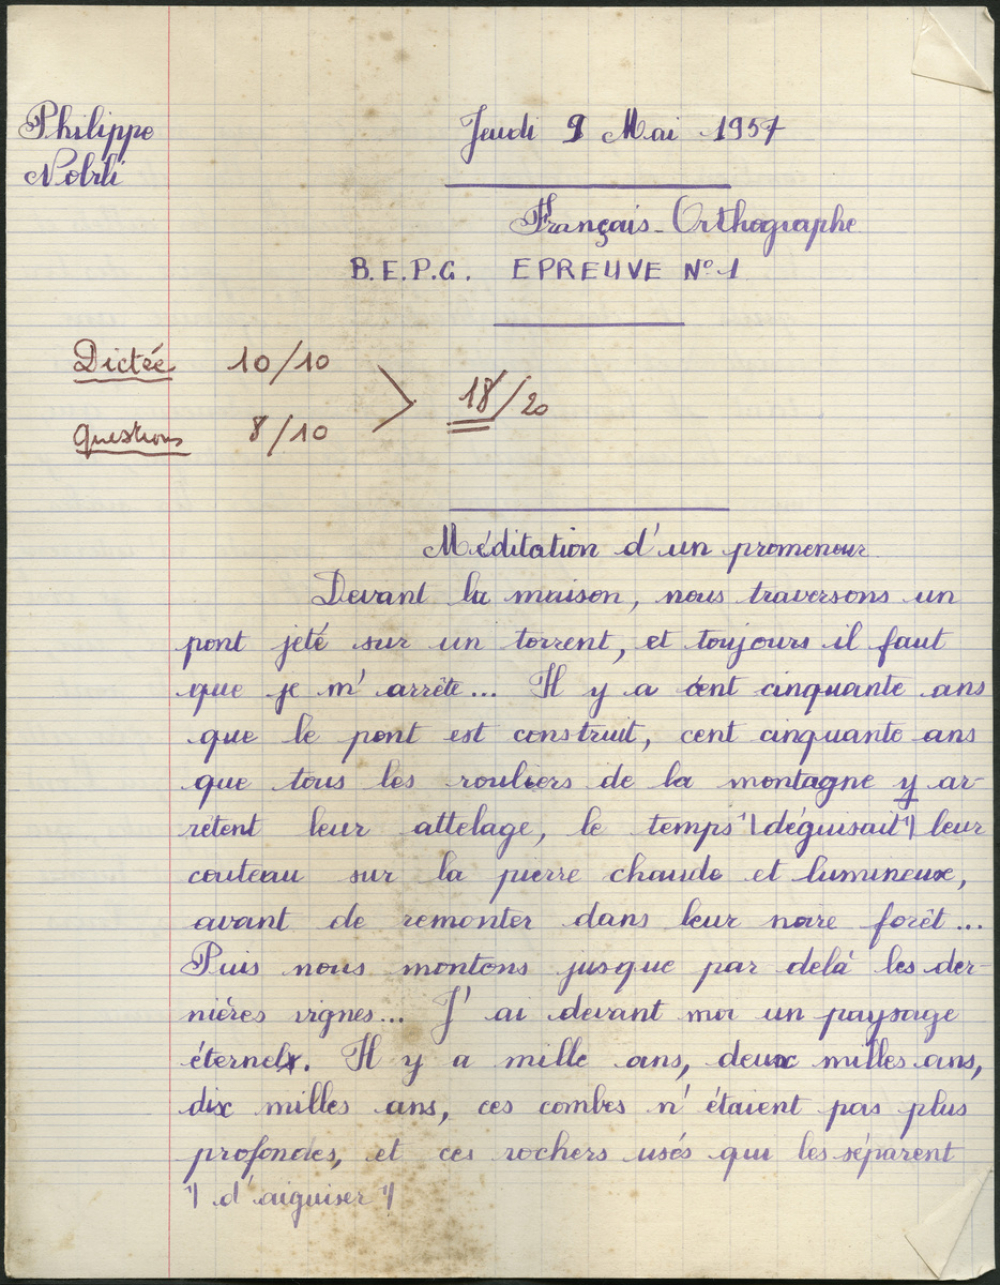 Philippe
Jeudi 9 Mai 1957
Français-Orthographe
B.E.P.C. EPREUVE Nº 1
Dictée 10/10
18/20
Questions 8/10
Méditation d'un promeneur
Devant la maison, nous traversons un
pont jeté sur un torrent, et toujours il faut
que je m'arrête... Il y a cent cinquante ans
que le pont est construit, cent cinquante ans
que tous les rouliers de la montagne y ar-
rêtent leur attelage, le temps "déguisait" leur
couteau sur la pierre chaude et lumineuse,
avant de remonter dans leur noire forêt...
Puis nous montons jusque par delà les der-
nières vignes... J'ai devant moi un paysage
éternel. Il y a mille ans, deux milles ans,
dix milles ans, ces combes n'étaient pas plus
profondes, et ces rochers usés qui les séparent
"d'aiguiser"